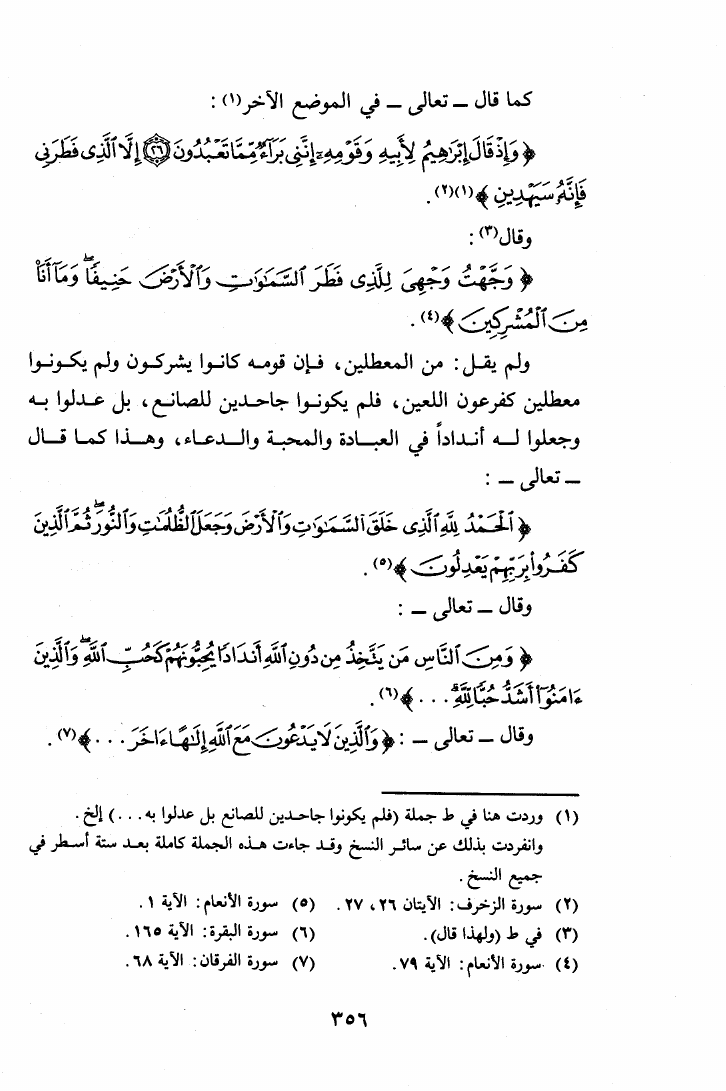 كما قال ــ تعالى ــ في الموضع الآخر(١) :
﴿ وَإِذْ قَالَ إِبْرَٰهِيمُ لِأَبِيهِ وَقَوْمِهِۦٓ إِنَّنِى بَرَآءٌ مِّمَّا تَعْبُدُونَ ٢٦ إِلَّا ٱلَّذِى فَطَرَنِى
فَإِنَّهُۥ سَيَهْدِينِ ﴾(١)(٢) .
وقال(٣) :
﴿ وَجَّهْتُ وَجْهِىَ لِلَّذِى فَطَرَ ٱلسَّمَٰوَٰتِ وَٱلْأَرْضَ حَنِيفًا ۖ وَمَآ أَنَا۠
مِنَ ٱلْمُشْرِكِينَ ﴾(٤) .
ولم يقـل : من المعطلين، فـإن قومـه كانـوا يشركـون ولم يكـونـوا
معطلين كفرعون اللعين، فلم يكونـوا جاحـدين للصانـع، بل عـدلوا بـه
وجعلوا لــه أنـداداً في العبــادة والمحبـة والــدعـاء، وهــذا كمـا قــال
ــ تعالى ــ :
﴿ ٱلْحَمْدُ لِلَّهِ ٱلَّذِى خَلَقَ ٱلسَّمَٰوَٰتِ وَٱلْأَرْضَ وَجَعَلَ ٱلظُّلُمَٰتِ وَٱلنُّورَ ۖ ثُمَّ ٱلَّذِينَ
كَفَرُوا۟ بِرَبِّهِمْ يَعْدِلُونَ ﴾(٥) .
وقال ــ تعالى ــ :
﴿ وَمِنَ ٱلنَّاسِ مَن يَتَّخِذُ مِن دُونِ ٱللَّهِ أَندَادًا يُحِبُّونَهُمْ كَحُبِّ ٱللَّهِ ۖ وَٱلَّذِينَ
ءَامَنُوٓا۟ أَشَدُّ حُبًّا لِّلَّهِ ۗ . . . ﴾(٦) .
وقال ــ تعالى ــ : ﴿ وَٱلَّذِينَ لَا يَدْعُونَ مَعَ ٱللَّهِ إِلَٰهًا ءَاخَرَ . . . ﴾(٧) .
(١) وردت هنا في ط جملة (فلم يكونوا جاحـدين للصانع بل عدلوا به . . .) إلخ .
وانفردت بذلك عن سائـر النسخ وقـد جاءت هـذه الجملة كاملة بعـد ستة أسـطر في
جميع النسخ .
(٢) سورة الزخرف: الآيتان ٢٦، ٢٧. (٥) سورة الأنعام: الآية ١.
(٣) في ط (ولهذا قال). (٦) سورة البقرة: الآية ١٦٥.
(٤) سورة الأنعام: الآية ٧٩. (٧) سورة الفرقان: الآية ٦٨.
٣٥٦